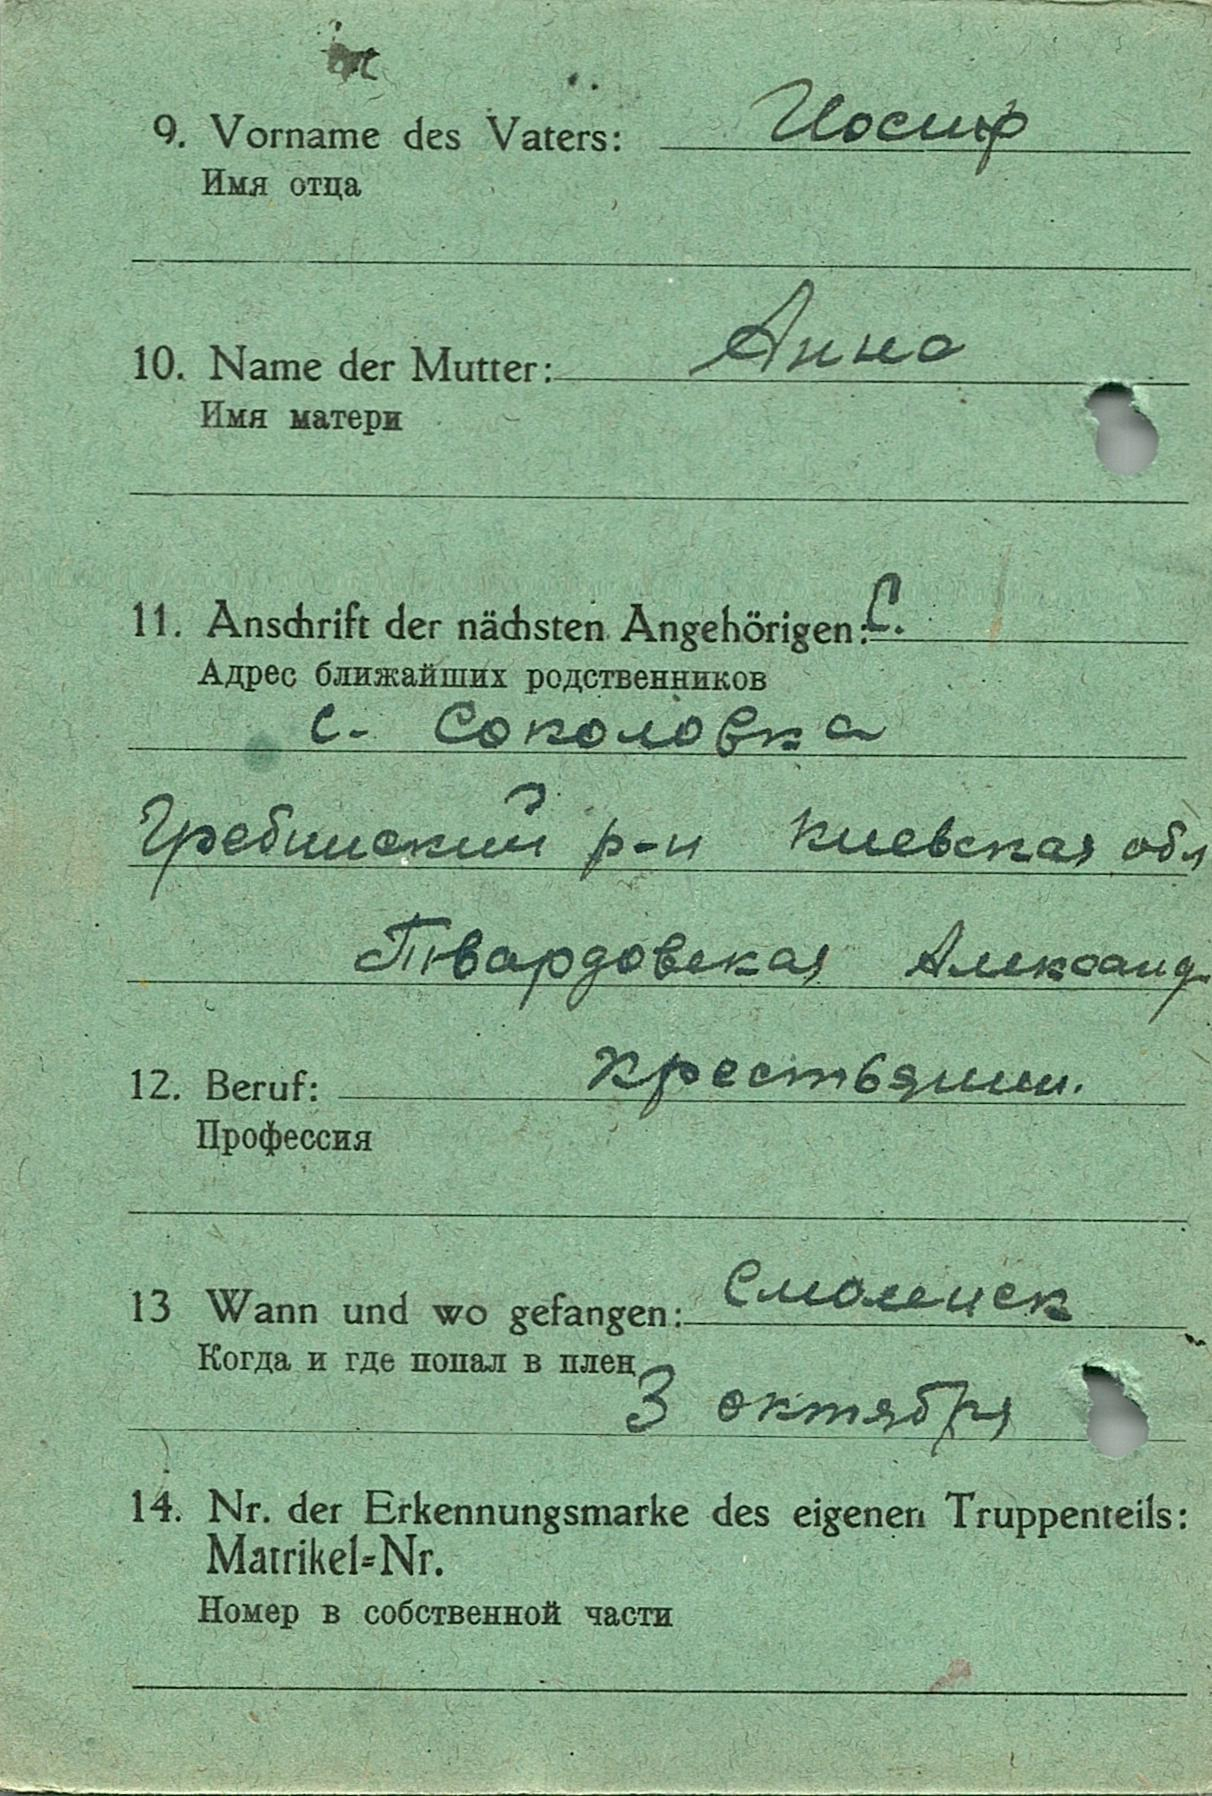 9. Vorname des Vaters: Иосиф
Имя отца
10. Name der Mutter: Анна
Имя матери
11. Anschrift der nächsten Angehörigen: С.
Адрес ближайших родственников
с. Соколовка
Гребинский р-н Киевская обл
Твардовская Александ
12. Beruf: Крестьянин.
Профессия
13 Wann und wo gefangen: Смоленск
Когда и где попал в плен
3 октября
14. Nr. der Erkennungsmarke des eigenen Truppenteils:
Matrikel=Nr.
Номер в собственной части